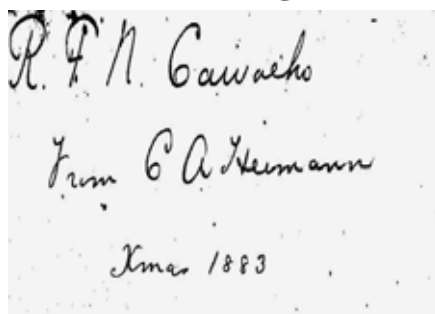 R. F. N. Carvalho
From C A Heimann
Xmas 1883